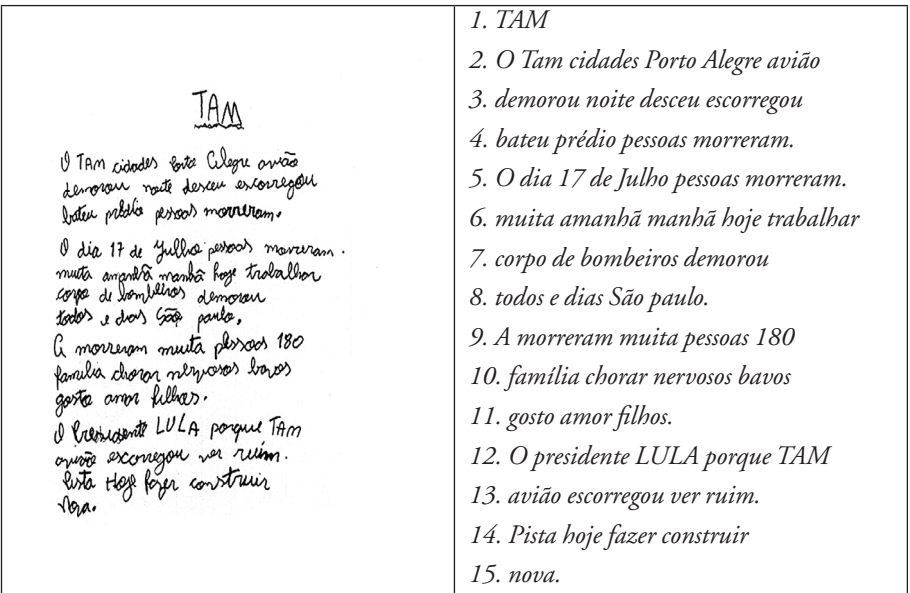 TAM
O TAM cidades Porto Alegre avião
demorou noite desceu escorregou
bateu prédio pessoas morreram.
O dia 17 de Julho pessoas morreram.
muita amanhã manhã hoje trabalhar
corpo de bombeiros demorou
todos e dias São paulo.
A morreram muita pessoas 180
familia chorar nervosos bavos
gosto amor filhos.
O Presidente LULA porque TAM
avião escorregou ver ruim.
Pista Hoje fazer construir
Nova.
1. TAM
2. O Tam cidades Porto Alegre avião
3. demorou noite desceu escorregou
4. bateu prédio pessoas morreram.
5. O dia 17 de Julho pessoas morreram.
6. muita amanhã manhã hoje trabalhar
7. corpo de bombeiros demorou
8. todos e dias São paulo.
9. A morreram muita pessoas 180
10. família chorar nervosos bavos
11. gosto amor filhos.
12. O presidente LULA porque TAM
13. avião escorregou ver ruim.
14. Pista hoje fazer construir
15. nova.